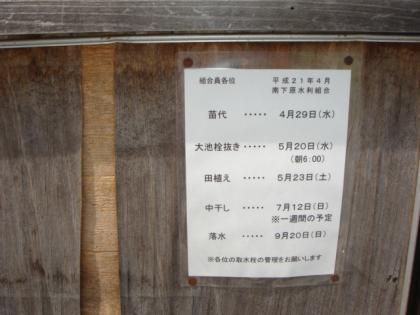 組合員各位 平成21年4月
南下原水利組合
苗代 ····· 4月29日(水)
大池栓抜き ····· 5月20日(水)
(朝6:00)
田植え ····· 5月23日(土)
中干し ····· 7月12日(日)
※一週間の予定
落水 ····· 9月20日(日)
※各位の取水栓の管理をお願いします